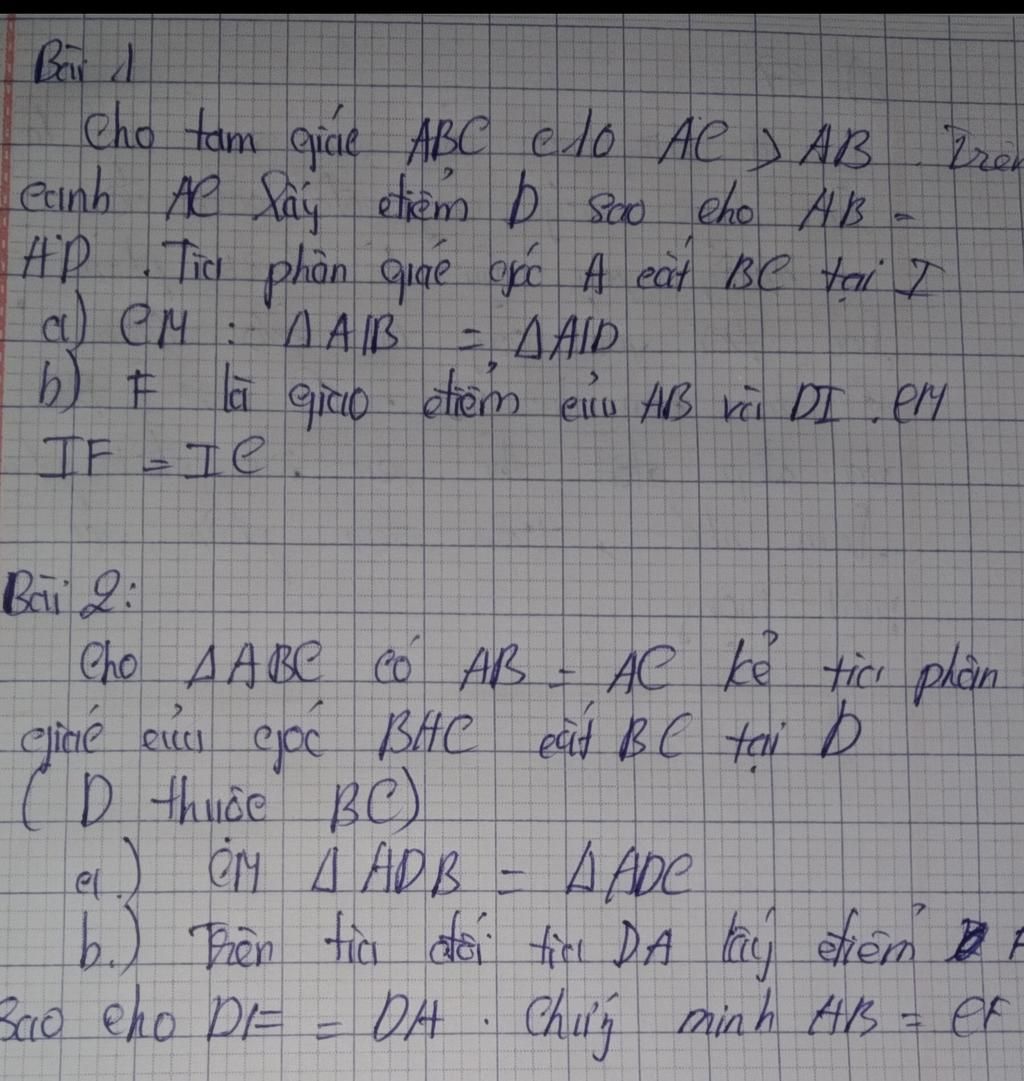 Bài 1
Cho tam giác ABC có AC > AB. Trên
cạnh AC lấy điểm D sao cho AB =
AD. Tia phân giác góc A cắt BC tại I
a) CM: ΔAIB = ΔAID
b) F là giao điểm của AB và DI. CM
IF = IC.
Bài 2:
Cho ΔABC có AB = AC kẻ tia phân
giác của góc BAC cắt BC tại D
(D thuộc BC)
a.) CM ΔADB = ΔADC
b.) Trên tia đối tia DA lấy điểm F
Sao cho DF = DA. Chứg minh AB = CF